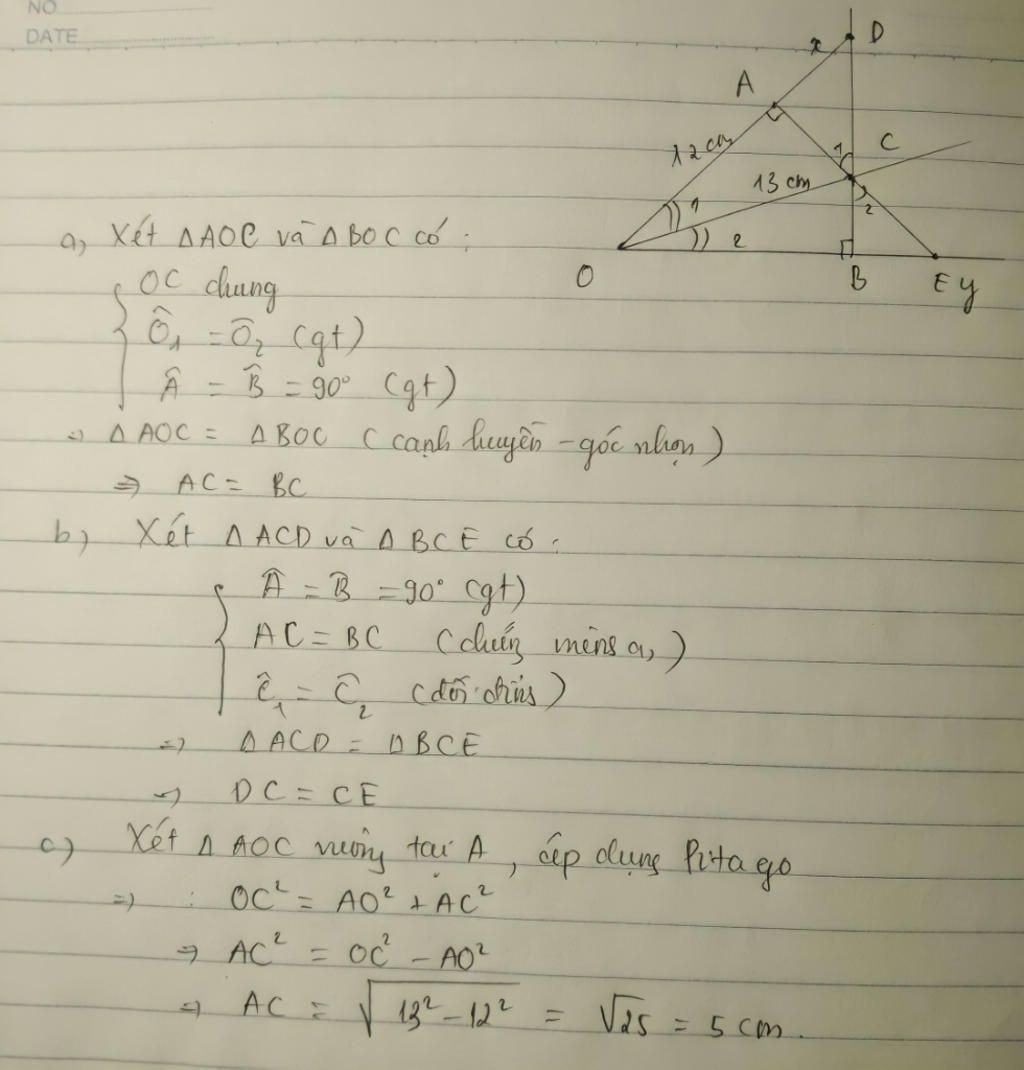 NO
DATE
x
D
A
12 cm
1
C
13 cm
2
1
2
O
B
E y
a, Xét ΔAOC và ΔBOC có :
OC chung
Ô₁ = Ô₂ (gt)
Â = B̂ = 90° (gt)
=> ΔAOC = ΔBOC (cạnh huyền - góc nhọn)
=> AC = BC
b, Xét ΔACD và ΔBCE có :
Â = B̂ = 90° (gt)
AC = BC (chứng minh a,)
Ĉ₁ = Ĉ₂ (đối đỉnh)
=> ΔACD = ΔBCE
=> DC = CE
c) Xét ΔAOC vuông tại A, áp dụng Pitago
=> : OC² = AO² + AC²
=> AC² = OC² - AO²
=> AC = √(13² - 12²) = √25 = 5 cm.